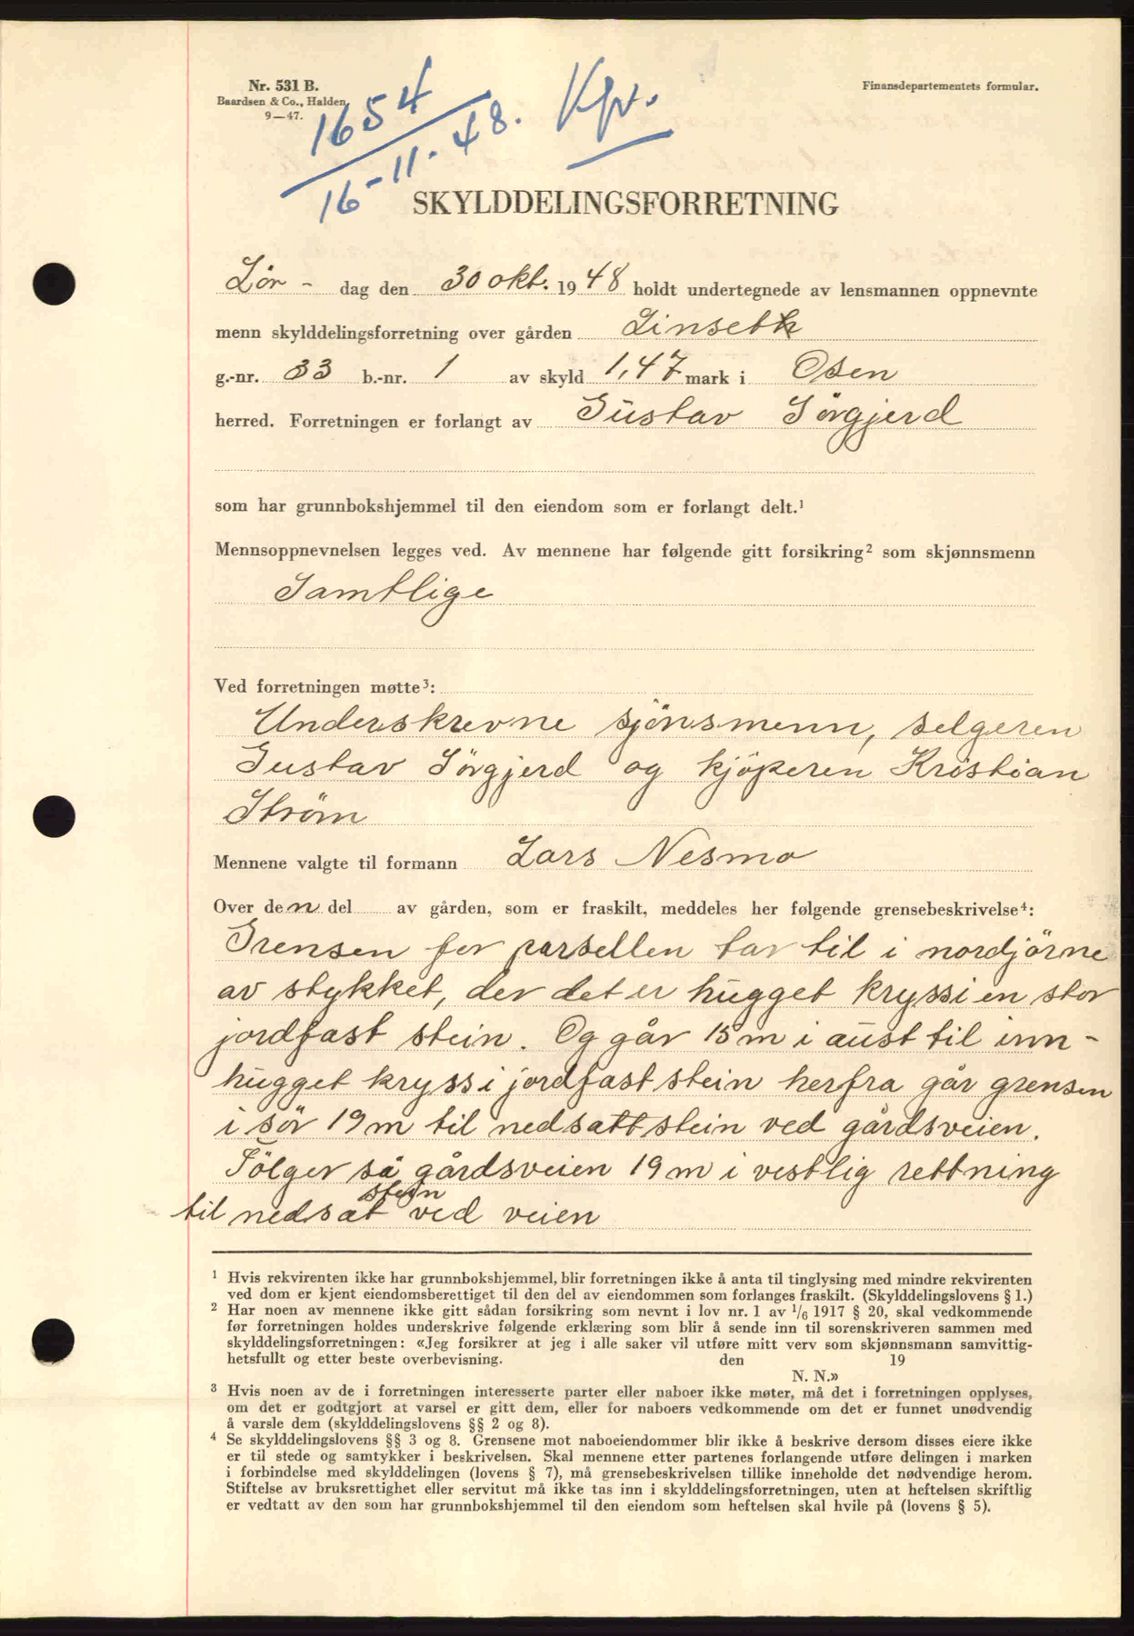 Nr. 531 B.
Baardsen & Co., Halden.
9—47.
Finansdepartementets formular.
1654
16-11-48. Kfv.
SKYLDDELINGSFORRETNING
Lör- dag den 30 okt. 1948 holdt undertegnede av lensmannen oppnevnte
menn skylddelingsforretning over gården Linseth
g.-nr. 33 b.-nr. 1 av skyld 1,47 mark i Osen
herred. Forretningen er forlangt av Gustav Sörgjerd
som har grunnbokshjemmel til den eiendom som er forlangt delt.¹
Mennsoppnevnelsen legges ved. Av mennene har følgende gitt forsikring² som skjønnsmenn
Samtlige
Ved forretningen møtte³:
Underskrevne sjönsmenn, selgeren
Gustav Sörgjerd og kjöperen Kristian
Ström
Mennene valgte til formann Lars Nesmo
Over den del av gården, som er fraskilt, meddeles her følgende grensebeskrivelse⁴:
Grensen for parsellen tar til i nordjörne
av stykket, der det er hugget kryss i en stor
jordfast stein. Og går 15 m i aust til inn-
hugget kryss i jordfast stein herfra går grensen
i sör 19 m til nedsatt stein ved gårdsveien.
Fölger så gårdsveien 19 m i vestlig rettning
til nedsat stein ved veien
¹ Hvis rekvirenten ikke har grunnbokshjemmel, blir forretningen ikke å anta til tinglysing med mindre rekvirenten
ved dom er kjent eiendomsberettiget til den del av eiendommen som forlanges fraskilt. (Skylddelingslovens § 1.)
² Har noen av mennene ikke gitt sådan forsikring som nevnt i lov nr. 1 av 1/6 1917 § 20, skal vedkommende
før forretningen holdes underskrive følgende erklæring som blir å sende inn til sorenskriveren sammen med
skylddelingsforretningen: «Jeg forsikrer at jeg i alle saker vil utføre mitt verv som skjønnsmann samvittig-
hetsfullt og etter beste overbevisning. den 19
N. N.»
³ Hvis noen av de i forretningen interesserte parter eller naboer ikke møter, må det i forretningen opplyses,
om det er godtgjort at varsel er gitt dem, eller for naboers vedkommende om det er funnet unødvendig
å varsle dem (skylddelingslovens §§ 2 og 8).
⁴ Se skylddelingslovens §§ 3 og 8. Grensene mot naboeiendommer blir ikke å beskrive dersom disses eiere ikke
er til stede og samtykker i beskrivelsen. Skal mennene etter partenes forlangende utføre delingen i marken
i forbindelse med skylddelingen (lovens § 7), må grensebeskrivelsen tillike inneholde det nødvendige herom.
Stiftelse av bruksrettighet eller servitut må ikke tas inn i skylddelingsforretningen, uten at heftelsen skriftlig
er vedtatt av den som har grunnbokshjemmel til den eiendom som heftelsen skal hvile på (lovens § 5).